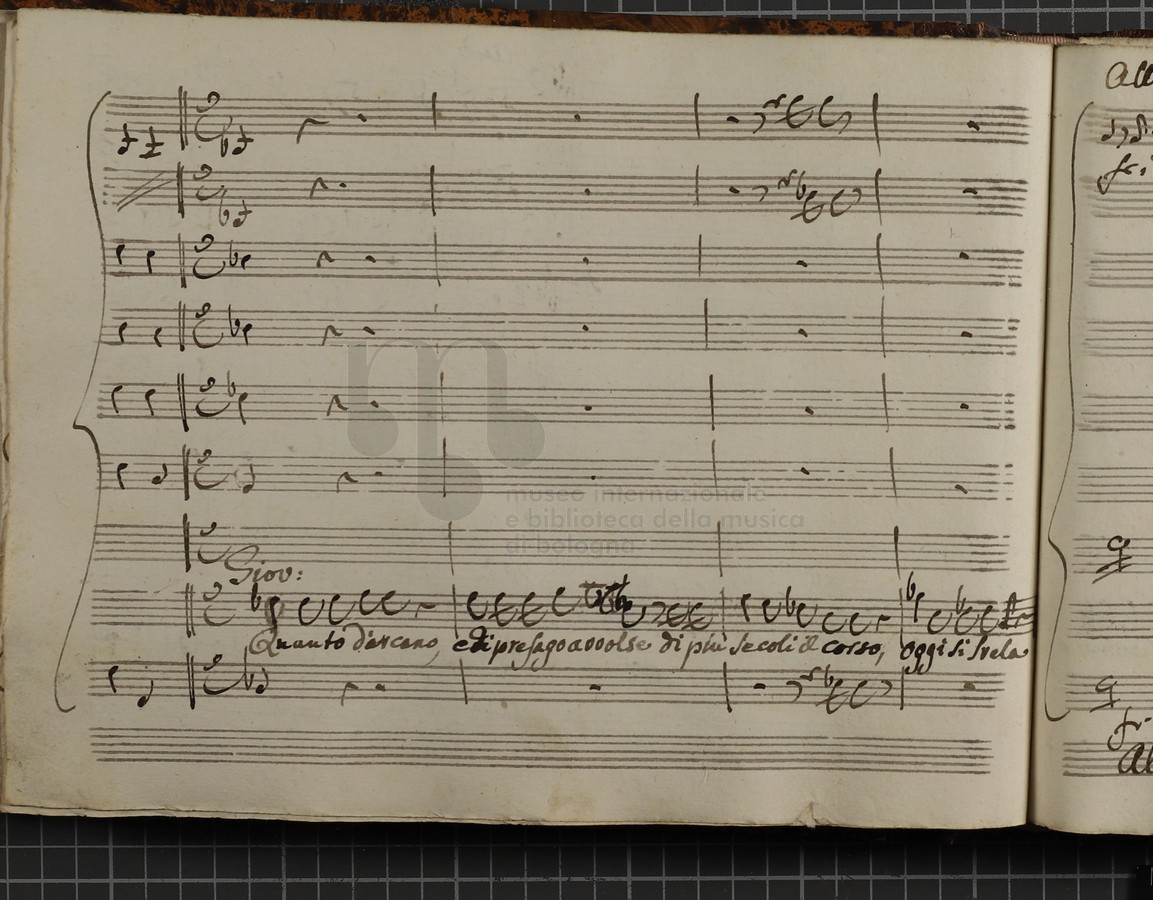 All
fr:
museo internazionale
e biblioteca della musica
di bologna
Giov:
Quanto d'arcano, e di presago avvolse di più secoli il corso, oggi si svela
fr:
All